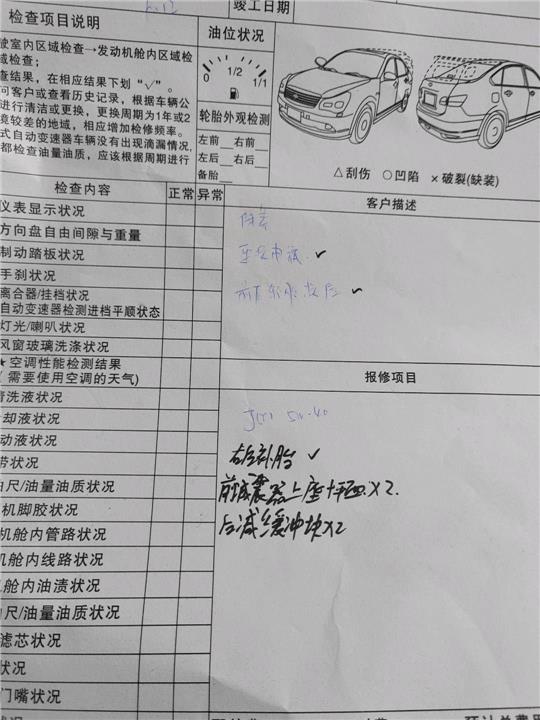 竣工日期
检查项目说明
油位状况
驶室内区域检查→发动机舱内区域检
域检查;
查结果，在相应结果下划“√”。
问客户或查看历史记录，根据车辆公
进行清洁或更换，更换周期为1年或2
境较差的地域，相应增加检修频率。
式自动变速器车辆没有出现滴漏情况，
都检查油量油质，应该根据周期进行
0 1/2 1/1
轮胎外观检测
左前 右前
左后 右后
备胎
△刮伤 ○凹陷 ×破裂(缺装)
检查内容 正常 异常
客户描述
仪表显示状况
方向盘自由间隙与重量
制动踏板状况
手刹状况
离合器/挂档状况
自动变速器检测进档平顺状态
灯光/喇叭状况
风窗玻璃洗涤状况
★空调性能检测结果
(需要使用空调的天气)
报修项目
清洗液状况
却液状况
动液状况
带状况
尺/油量油质状况
机脚胶状况
机舱内管路状况
机舱内线路状况
机舱内油渍状况
尺/油量油质状况
滤芯状况
状况
门嘴状况
保养
✓
✓
5W-40
右后补胎 ✓
前减震器上座 ×2.
后减缓冲块×2